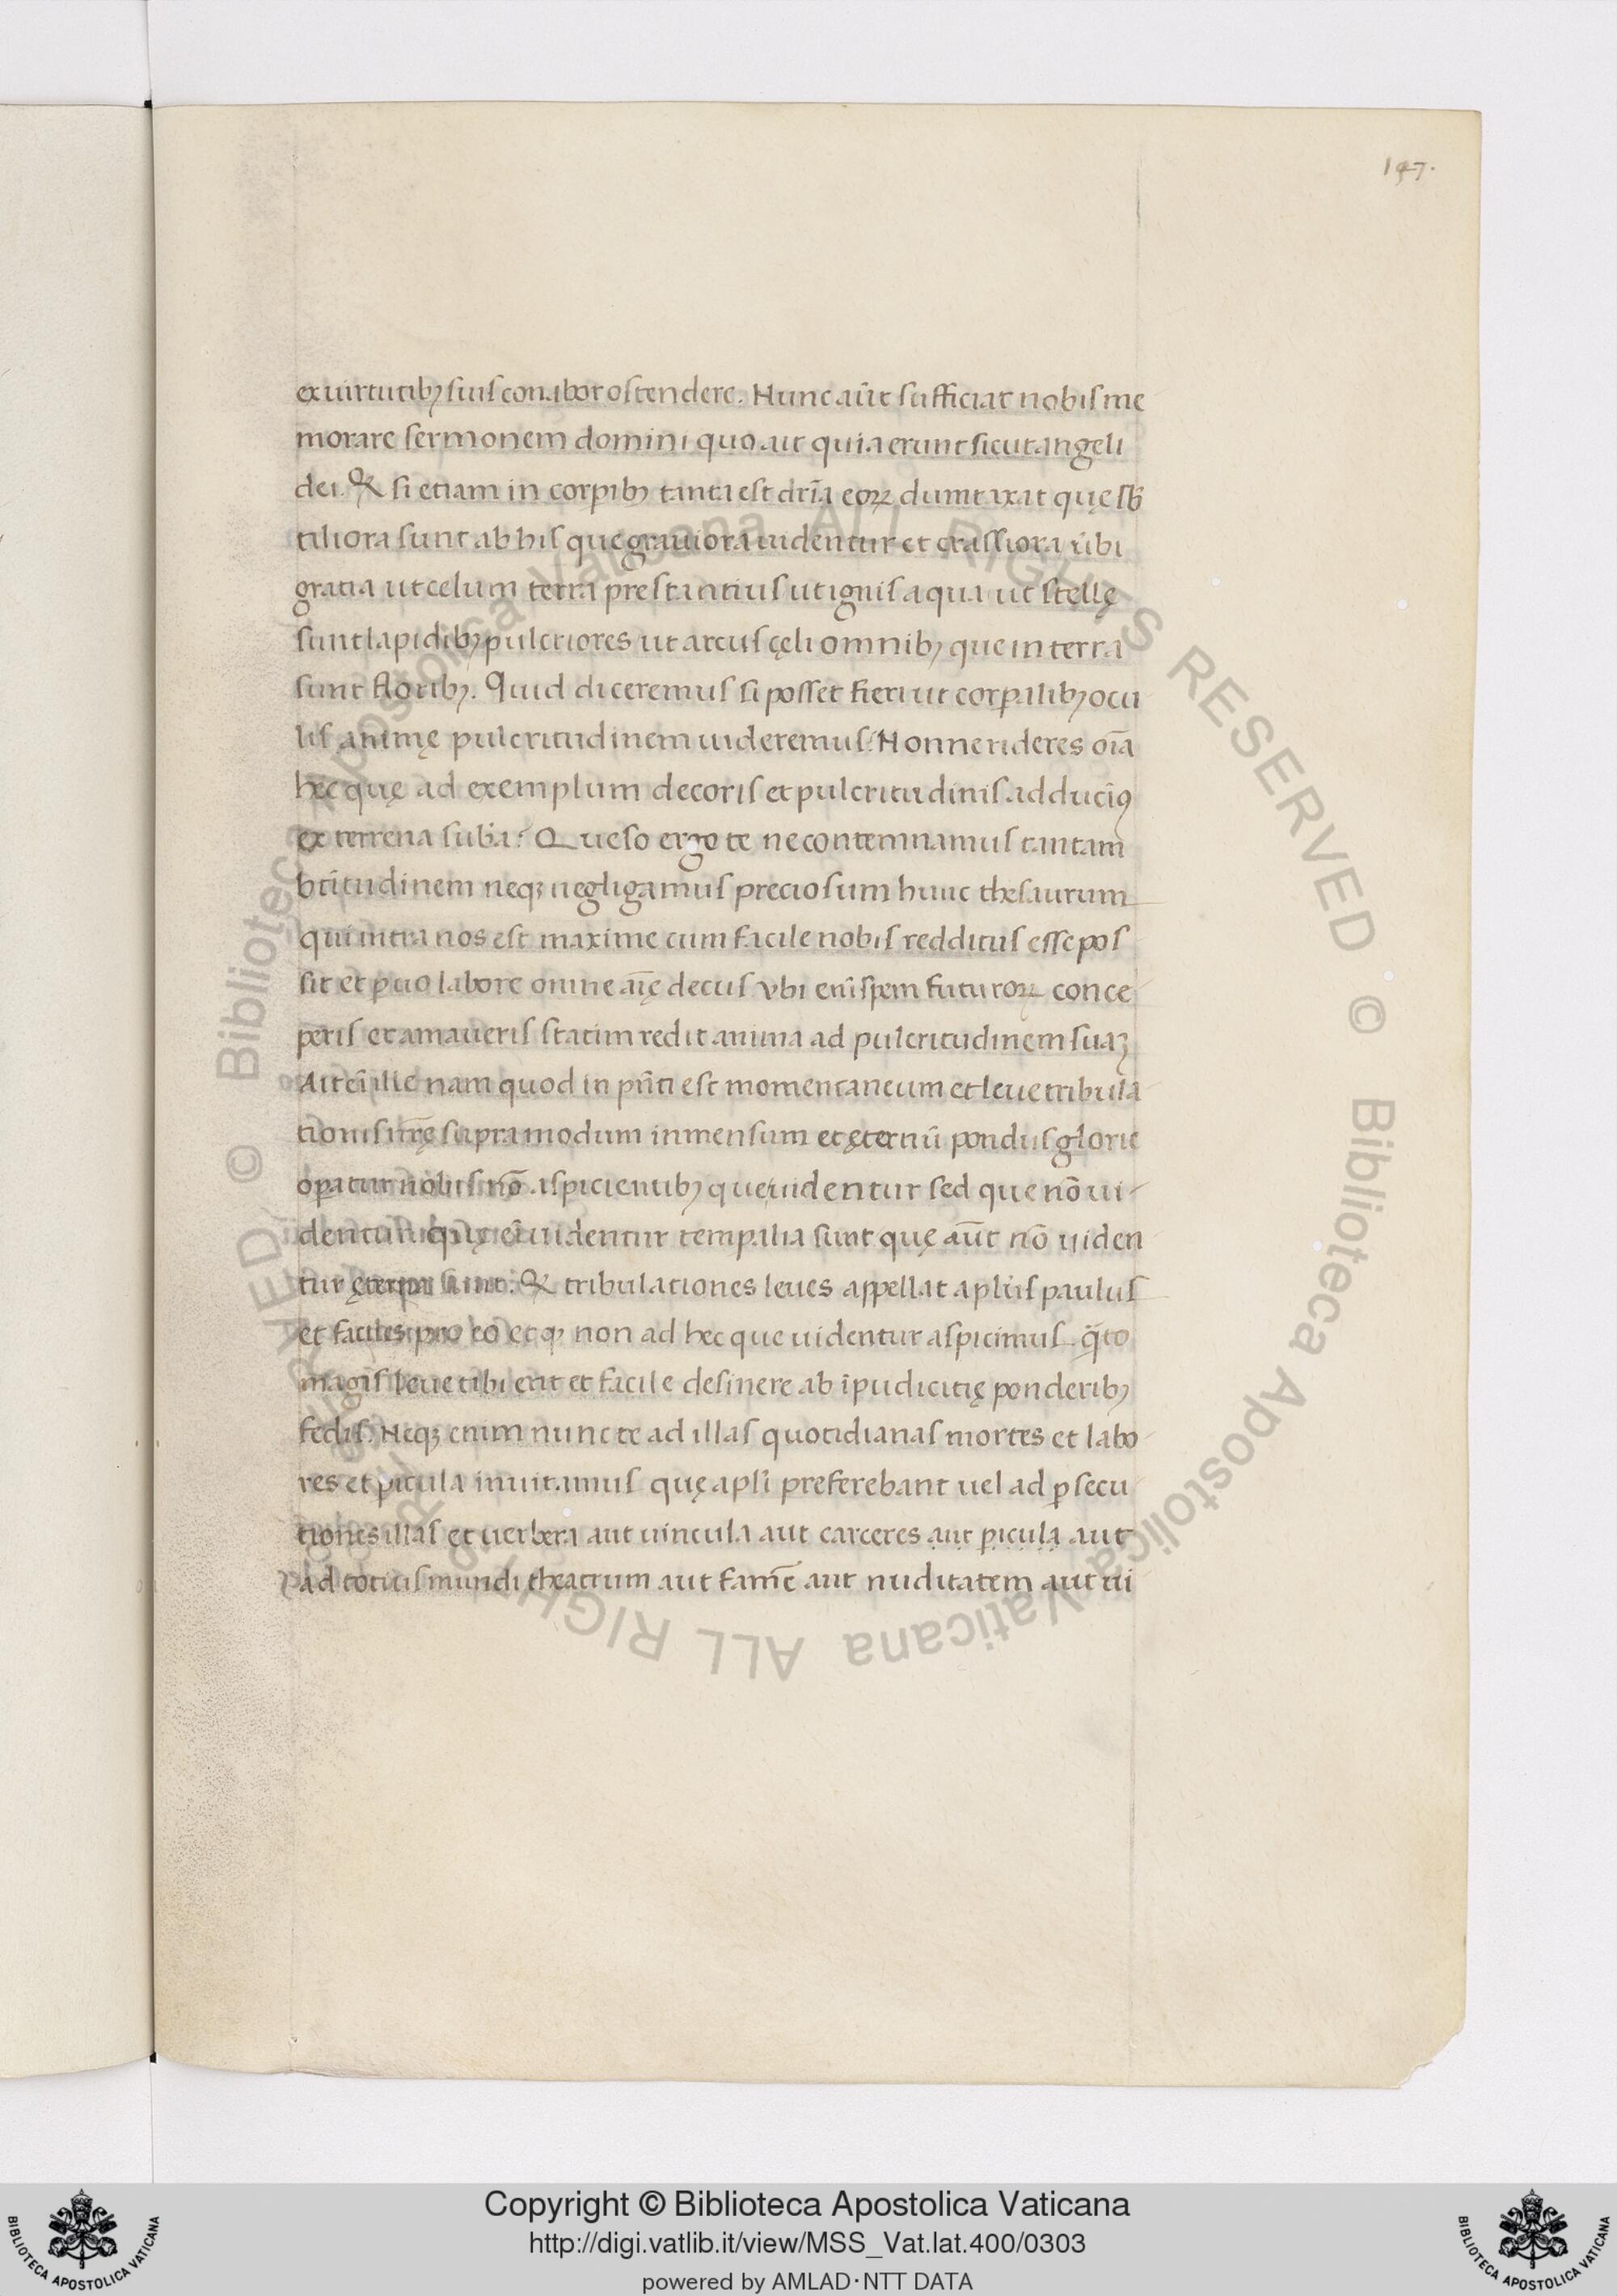 197.
ex uirtutibꝫ suis conabor ostendere. Nunc aūt sufficiat nobis me
morare sermonem domini quo ait quia erunt sicut angeli
dei. Qꝛ si etiam in corpibꝫ tanta est dr̄ia eoꝝ dumtaxat quę sb̄
tiliora sunt ab his que grauiora uidentur et crassiora ūbi
gratia ut celum terra prestantius ut ignis aqua ut stellę
sunt lapidibꝫ pulcriores ut arcus cęli omnibꝫ que in terra
sunt floribꝫ. Quid diceremus si posset fieri ut corꝑalibꝫ ocu
lis animę pulcritudinem uideremus? Nonne rideres oīa
hec quę ad exemplum decoris et pulcritudinis adducim̄ꝰ
ex terrena suba? Queso ergo te ne contemnamus tantam
btītudinem neqꝫ negligamus preciosum hunc thesaurum
qui intra nos est maxime cum facile nobis redditus esse pos
sit et ꝑuo labore omne aīę decus vbi enī spem futuroꝝ conce
peris et amaueris statim redit anima ad pulcritudinem suaꝫ
Ait eī ille nam quod in pn̄ti est momentaneum et leue tribula
tionis nr̄ę supra modum inmensum et ęternū pondus glorie
oꝑatur nobis nō aspicientibꝫ que uidentur sed que nō ui
dentur quę eī uidentur temꝑalia sunt quę aūt nō uiden
tur ęterna sunt. Qꝛ tribulationes leues appellat aplūs paulus
et faciles pro eo et qꝫ non ad hec que uidentur aspicimus. q̈to
magis leue tibi erit et facile desinere ab īpudicitię ponderibꝫ
fedis. Neqꝫ enim nunc te ad illas quotidianas mortes et labo
res et ꝑicula inuitamus quę apli preferebant uel ad ꝑsecu
tiones illas et uerbera aut uincula aut carceres aut ꝑicula aut
ad totius mundi theatrum aut famē aut nuditatem aut ui
© Biblioteca Apostolica Vaticana ALL RIGHTS RESERVED © Biblioteca Apostolica Vaticana ALL RIGHTS RESERVED
Copyright © Biblioteca Apostolica Vaticana
http://digi.vatlib.it/view/MSS_Vat.lat.400/0303
powered by AMLAD·NTT DATA
BIBLIOTECA APOSTOLICA VATICANA
BIBLIOTECA APOSTOLICA VATICANA